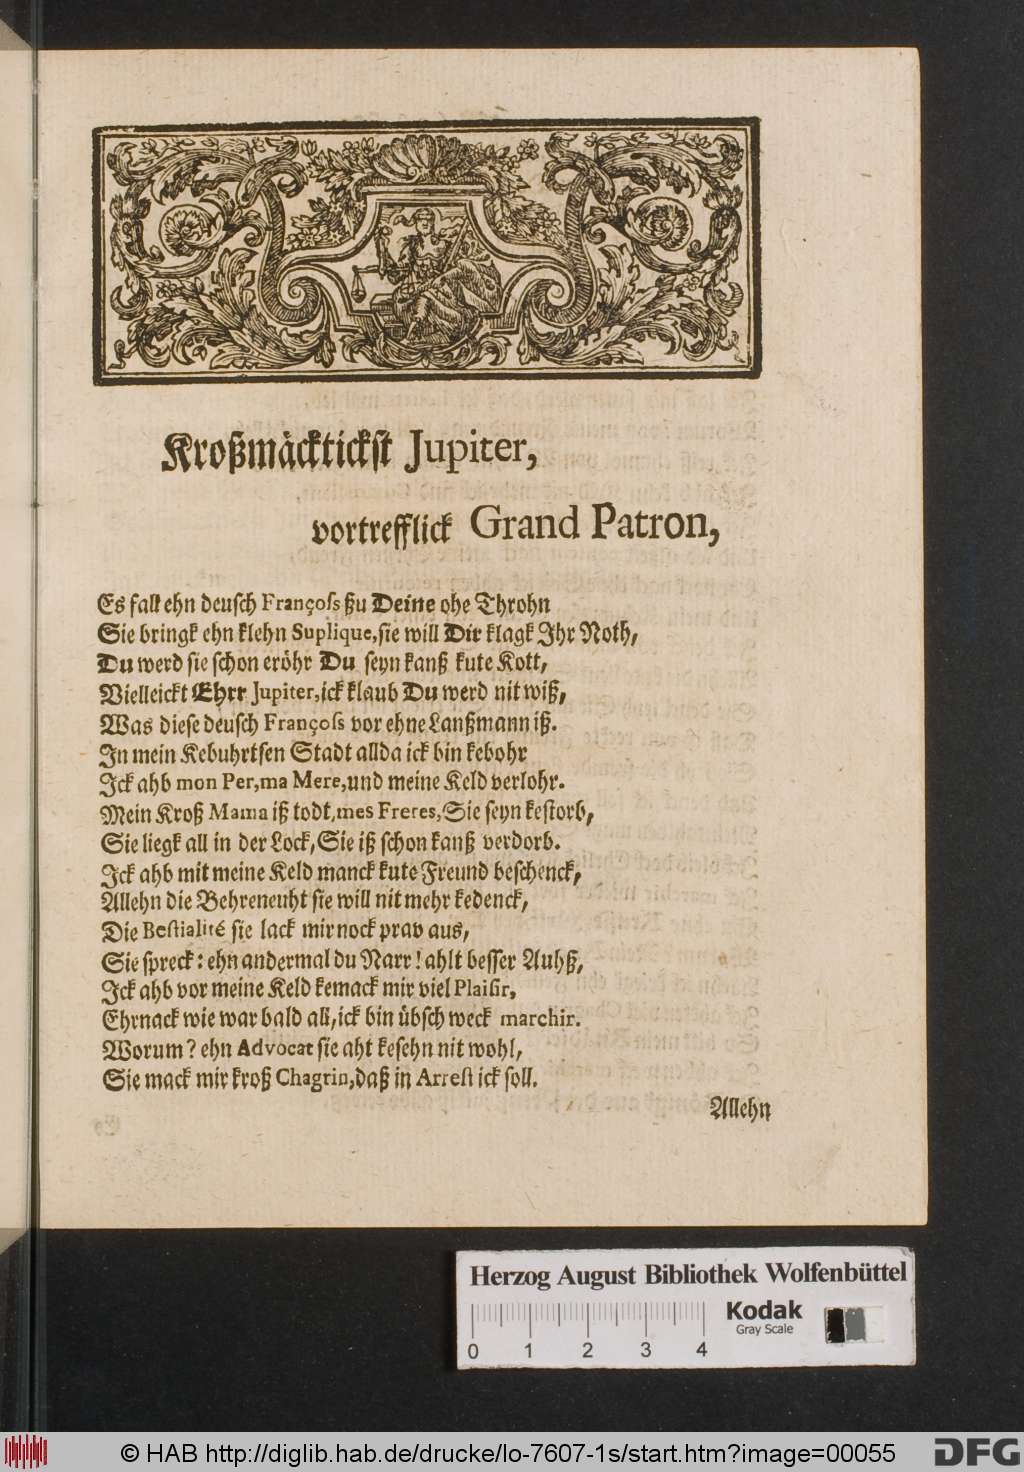 Kroßmäcktickst Jupiter,
vortrefflick Grand Patron,
Es fall ehn deusch Françoss ßu Deine ohe Throhn
Sie bringk ehn klehn Suplique, sie will Dir klagk Ihr Noth,
Du werd sie schon eröhr Du seyn kanß kute Kott,
Vielleickt Ehrr Jupiter, ick klaub Du werd nit wiß,
Was diese deusch Françoss vor ehne Lanßmann iß.
In mein Kebuhrtsen Stadt allda ick bin kebohr
Ick ahb mon Per, ma Mere, und meine Keld verlohr.
Mein Kroß Mama iß todt, mes Freres, Sie seyn kestorb,
Sie liegk all in der Lock, Sie iß schon kanß verdorb.
Ick ahb mit meine Keld manck kute Freund beschenck,
Allehn die Behreneuht sie will nit mehr kedenck,
Die Bestialité sie lack mir nock prav aus,
Sie spreck: ehn andermal du Narr! ahlt besser Auhß,
Ick ahb vor meine Keld kemack mir viel Plaisir,
Ehrnack wie war bald all, ick bin übsch weck marchir.
Worum? ehn Advocat sie aht kesehn nit wohl,
Sie mack mir kroß Chagrin, daß in Arrest ick soll.
Allehn
Herzog August Bibliothek Wolfenbüttel
Kodak
Gray Scale
0 1 2 3 4
© HAB http://diglib.hab.de/drucke/lo-7607-1s/start.htm?image=00055
DFG